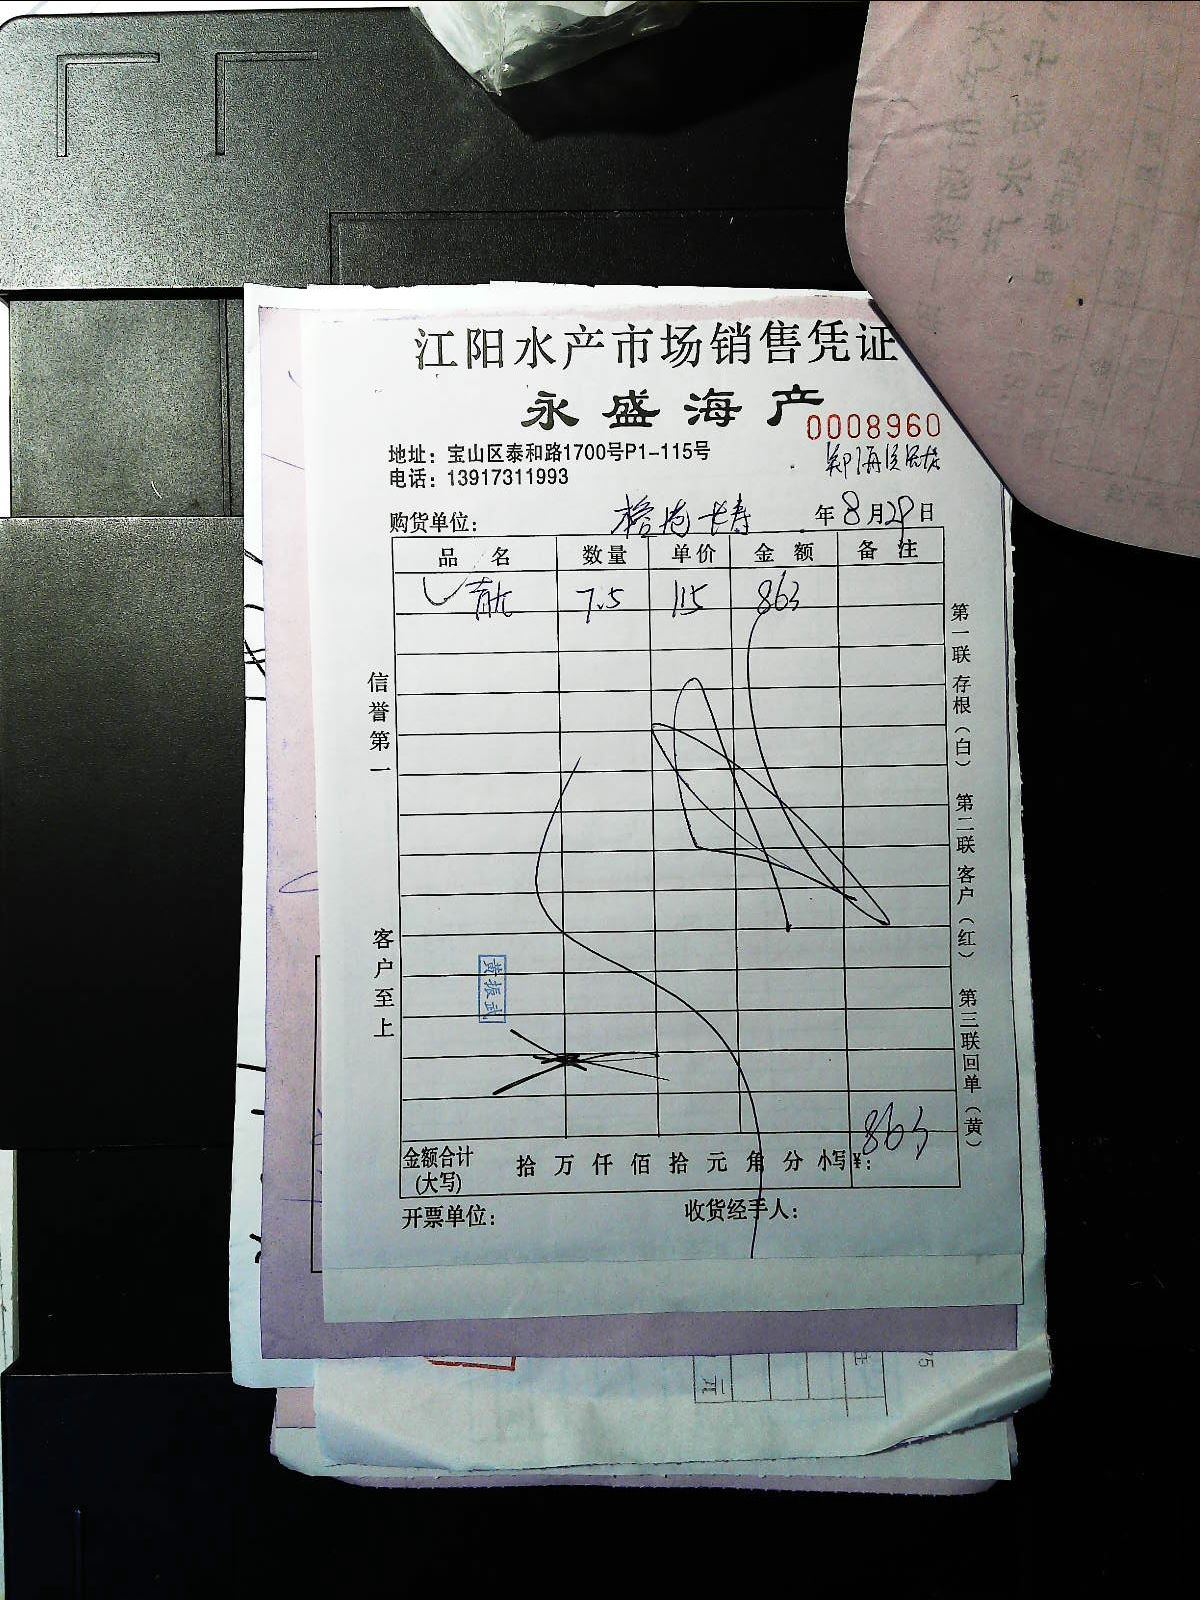 江阳水产市场销售凭证
永盛海产
0008960
地址：宝山区泰和路1700号P1-115号
电话：13917311993
购货单位： 长寿 年8月29日
品 名 数量 单价 金 额 备 注
7.5 115 863
信誉第一
客户至上
第一联存根（白） 第二联客户（红） 第三联回单（黄）
黄振武
金额合计(大写) 拾 万 仟 佰 拾 元 角 分 小写¥： 863
开票单位： 收货经手人：